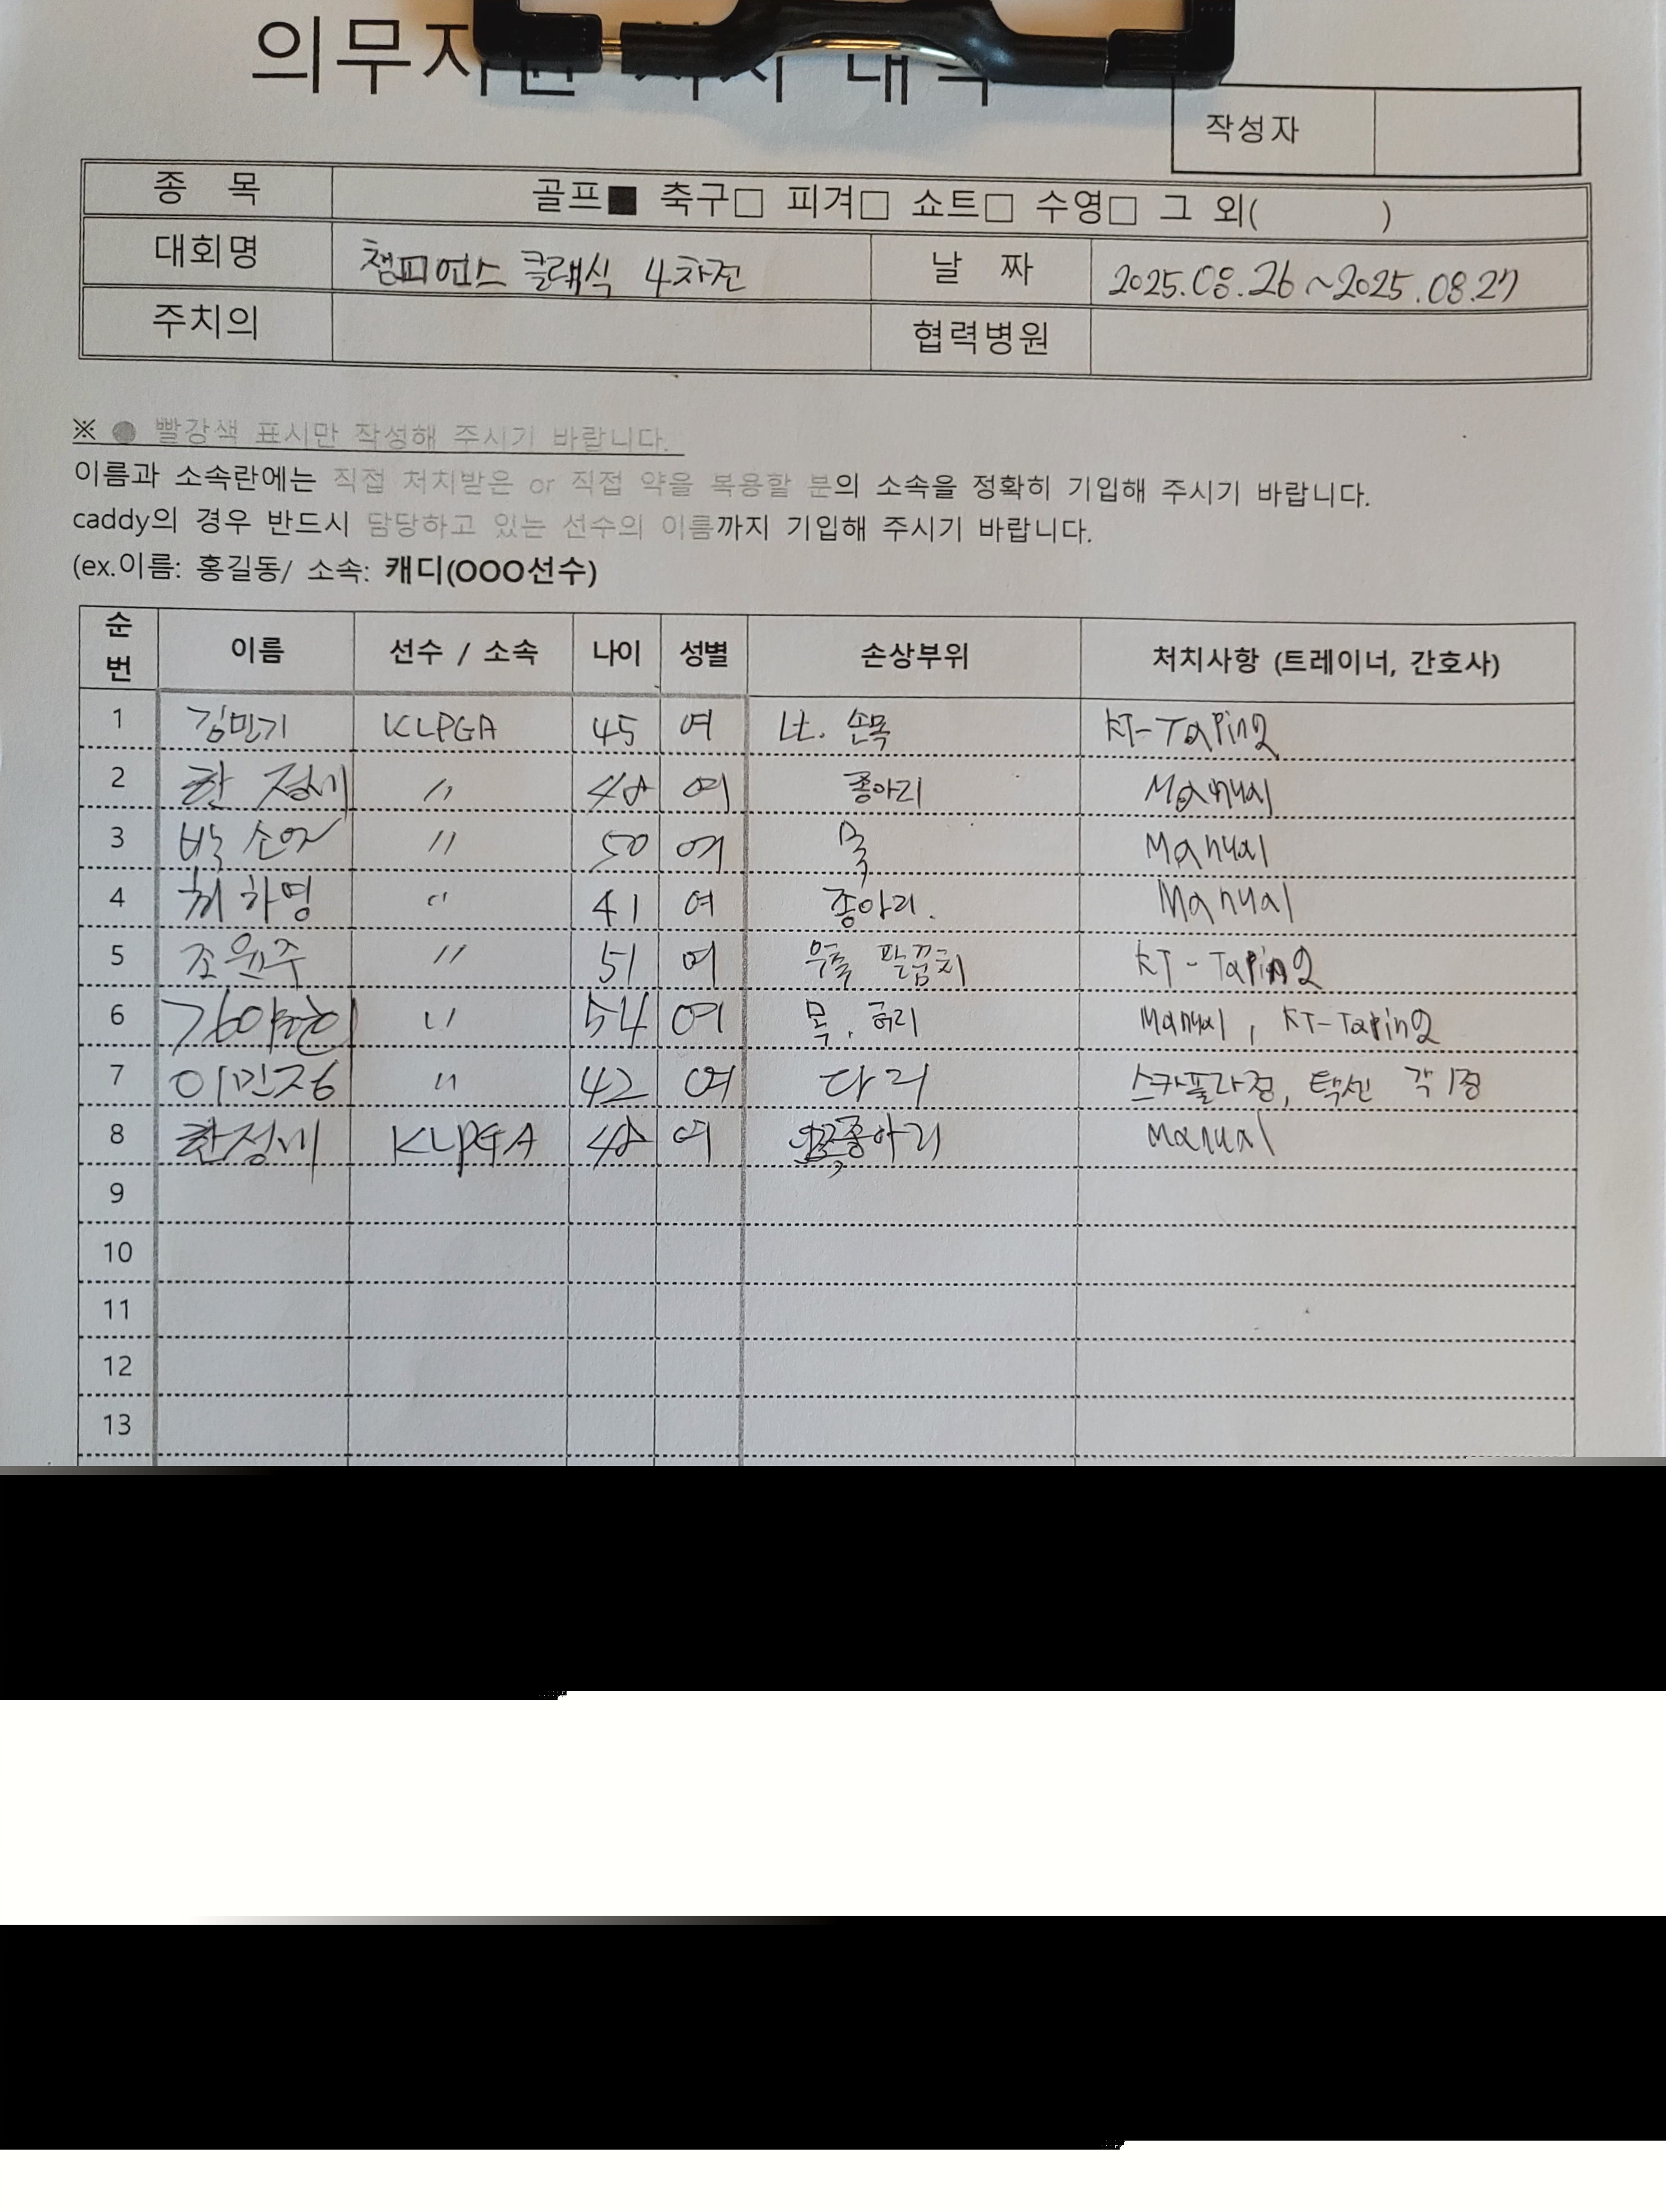 작성자
종 목 골프■ 축구□ 피겨□ 쇼트□ 수영□ 그 외( )
대회명 챔피언스 클래식 4차전 날 짜 2025.08.26 ~ 2025.08.27
주치의 협력병원
※ ● 빨강색 표시만 작성해 주시기 바랍니다.
이름과 소속란에는 직접 처치받은 or 직접 약을 복용할 분의 소속을 정확히 기입해 주시기 바랍니다.
caddy의 경우 반드시 담당하고 있는 선수의 이름까지 기입해 주시기 바랍니다.
(ex.이름: 홍길동/ 소속: 캐디(OOO선수)
순번 이름 선수 / 소속 나이 성별 손상부위 처치사항 (트레이너, 간호사)
1 김민기 KLPGA 45 여 Lt. 손목 KT-Taping
2 한정세 〃 48 여 종아리 Manual
3 박소연 〃 50 여 목 Manual
4 최하영 〃 41 여 종아리. Manual
5 조윤주 〃 51 여 우측 팔꿈치 KT-Taping
6 〃 54 여 목, 허리 Manual, KT-Taping
7 이민정 〃 42 여 다리 스카풀라정, 텍센 각 1정
8 한정세 KLPGA 48 여 종아리 Manual
9
10
11
12
13